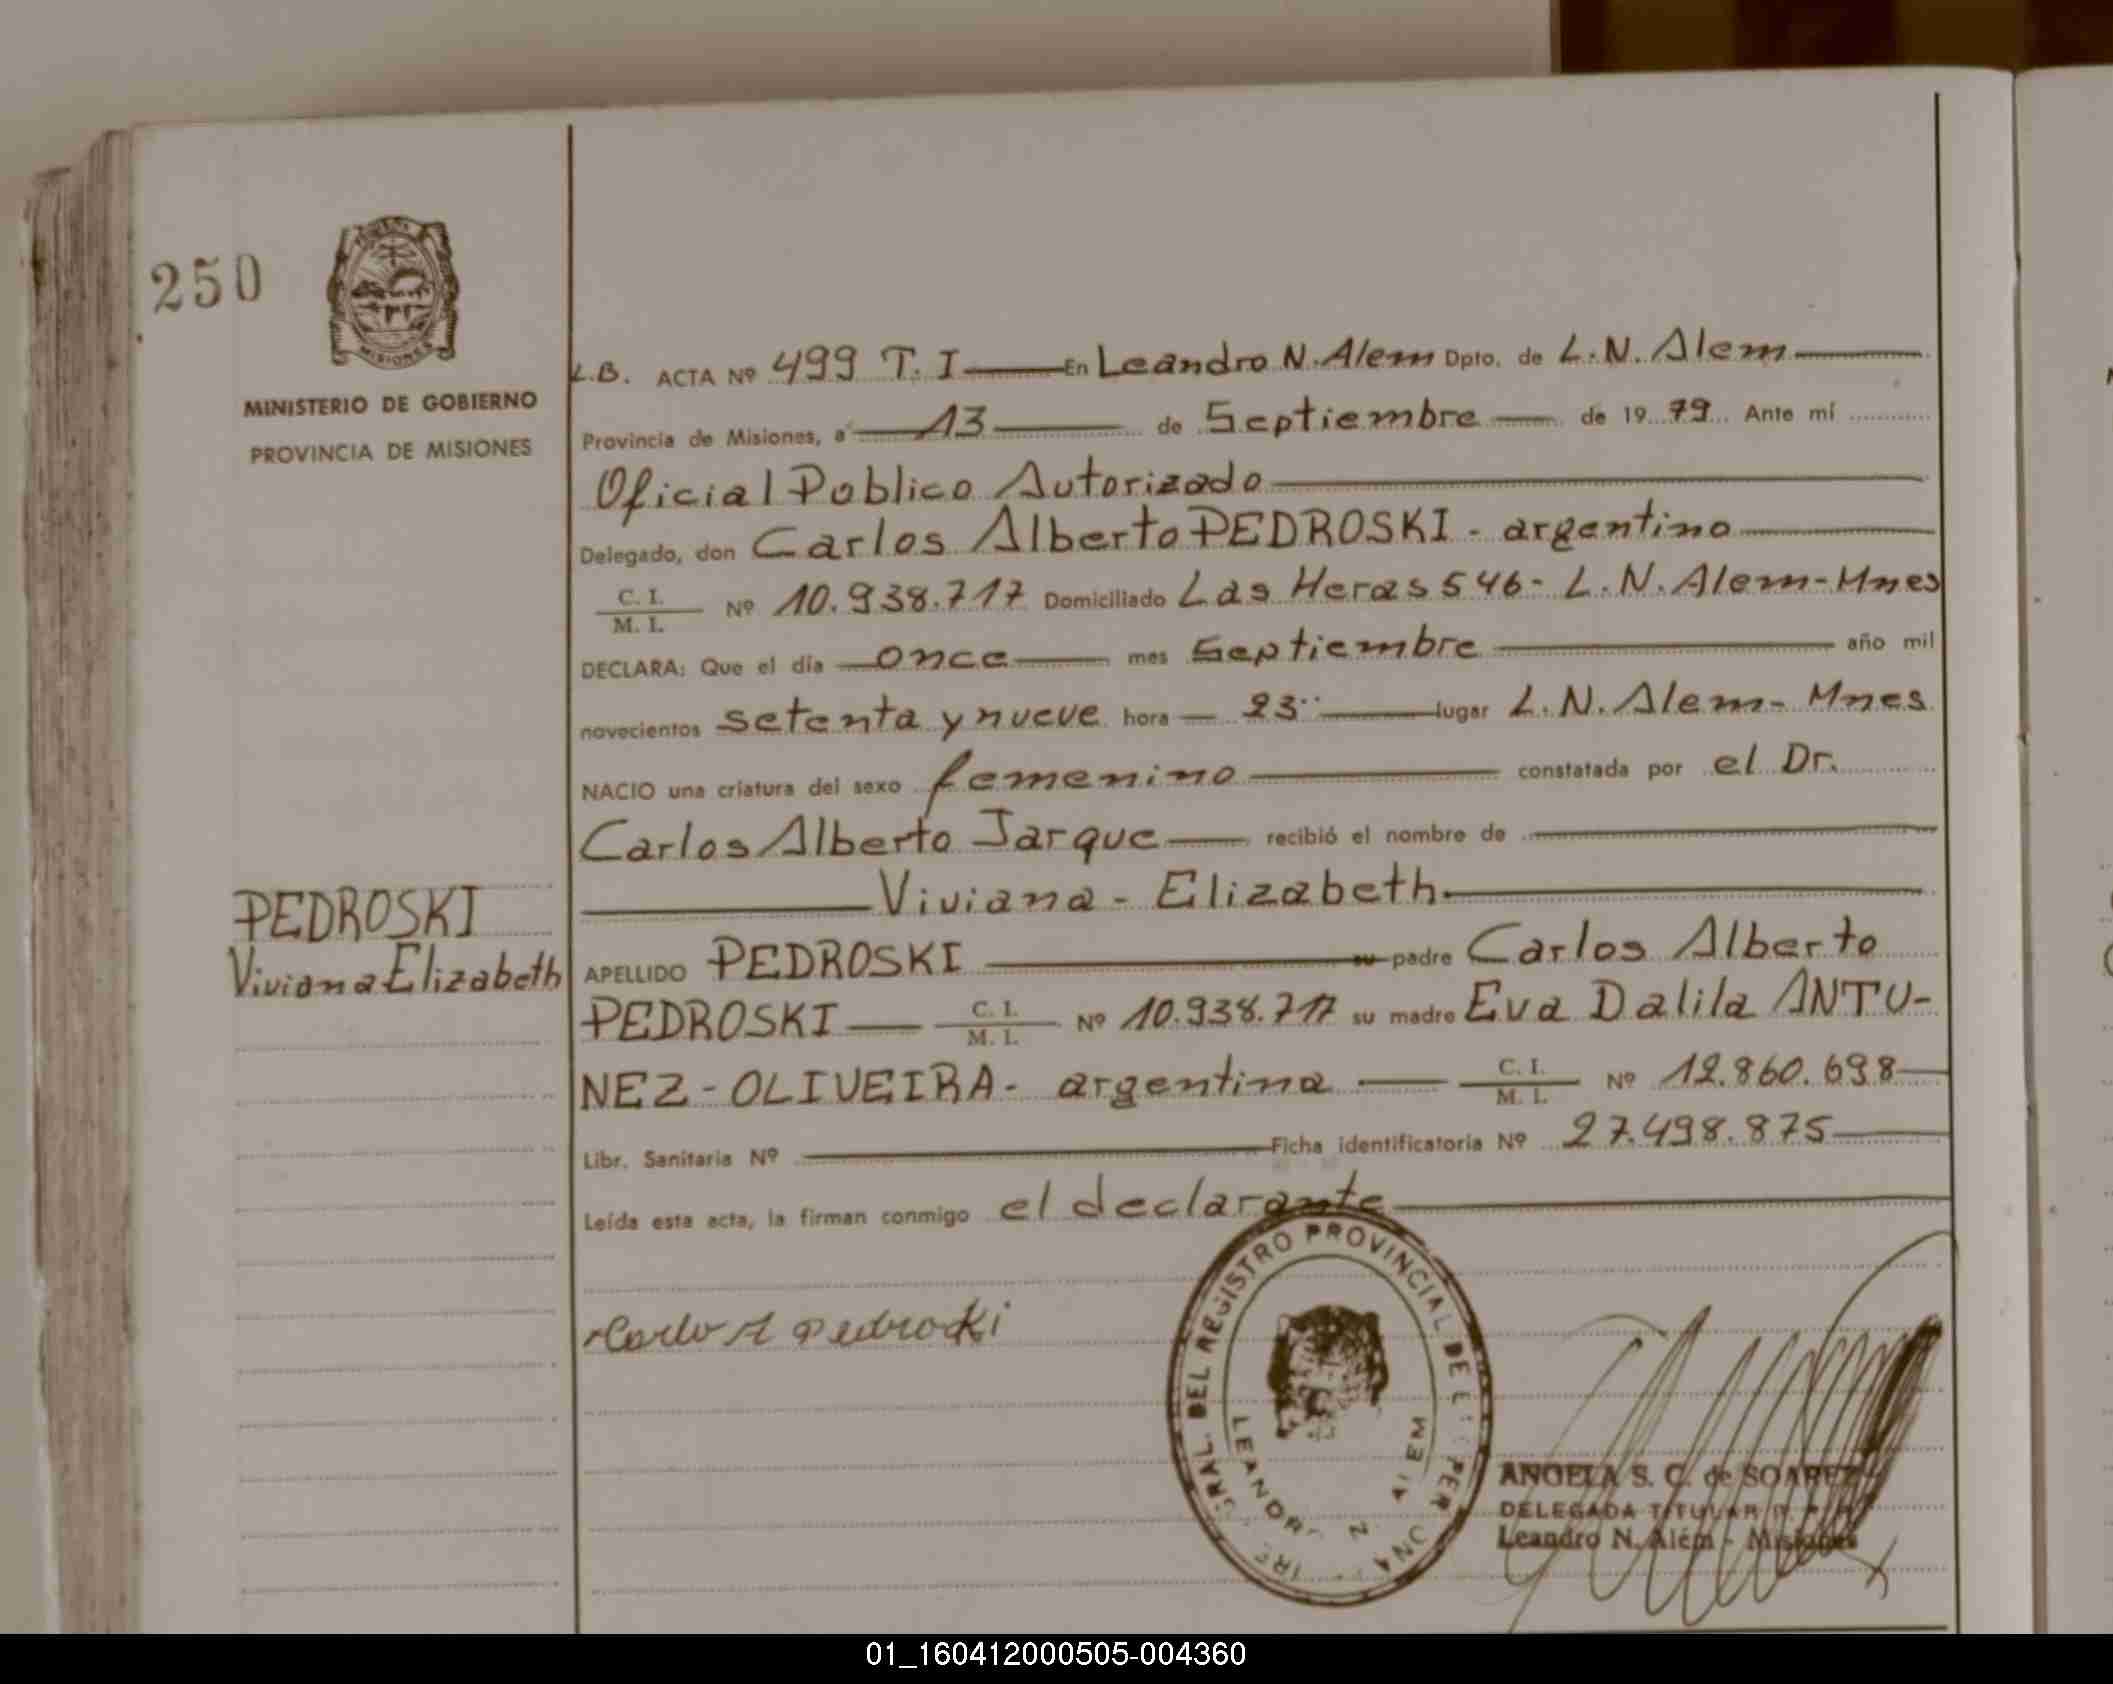 250
MISIONES
MINISTERIO DE GOBIERNO
PROVINCIA DE MISIONES
PEDROSKI
Viviana Elizabeth
L.B. ACTA Nº 499 T. I En Leandro N. Alem Dpto. de L. N. Alem
Provincia de Misiones, a 13 de Septiembre de 1979 Ante mí
Oficial Publico Autorizado
Delegado, don Carlos Alberto PEDROSKI - argentino
C. I.
M. I. Nº 10.938.717 Domiciliado Las Heras 546 - L. N. Alem - Mnes
DECLARA: Que el día once mes Septiembre año mil
novecientos setenta y nueve hora 23 lugar L. N. Alem - Mnes
NACIO una criatura del sexo femenino constatada por el Dr.
Carlos Alberto Jarque recibió el nombre de
Viviana - Elizabeth
APELLIDO PEDROSKI su padre Carlos Alberto
PEDROSKI C. I. M. I. Nº 10.938.717 su madre Eva Dalila ANTU-
NEZ - OLIVEIRA - argentina C. I. M. I. Nº 12.860.698
Libr. Sanitaria Nº Ficha identificatoria Nº 27.498.875
Leída esta acta, la firman conmigo el declarante
Carlos A Pedroski
GRAL. DEL REGISTRO PROVINCIAL DE
LEANDRO N. ALEM
ANGELA S. C. de SOAREZ
DELEGADA TITULAR
Leandro N. Além - Misiones
01_160412000505-004360